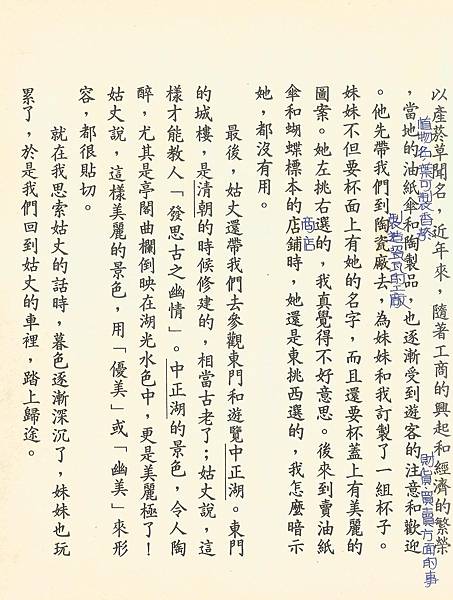 以產菸草聞名，近年來，隨著工商的興起和經濟的繁榮
植物名葉可製香菸
財貨買賣方面的事
，當地的油紙傘和陶製品，也逐漸受到遊客的注意和歡迎
。他先帶我們到陶瓷廠去，為妹妹和我訂製了一組杯子。
製造瓷瓦的工廠
妹妹不但要杯面上有她的名字，而且還要杯蓋上有美麗的
圖案。她左挑右選的，我真覺得不好意思。後來到賣油紙
傘和蝴蝶標本的店鋪時，她還是東挑西選的，我怎麼暗示
商店
她，都沒有用。
最後，姑丈還帶我們去參觀東門和遊覽中正湖。東門
的城樓，是清朝的時候修建的，相當古老了；姑丈說，這
樣才能教人「發思古之幽情」。中正湖的景色，令人陶
醉，尤其是亭閣曲欄倒映在湖光水色中，更是美麗極了！
姑丈說，這樣美麗的景色，用「優美」或「幽美」來形
容，都很貼切。
就在我思索姑丈的話時，暮色逐漸深沉了，妹妹也玩
累了，於是我們回到姑丈的車裡，踏上歸途。